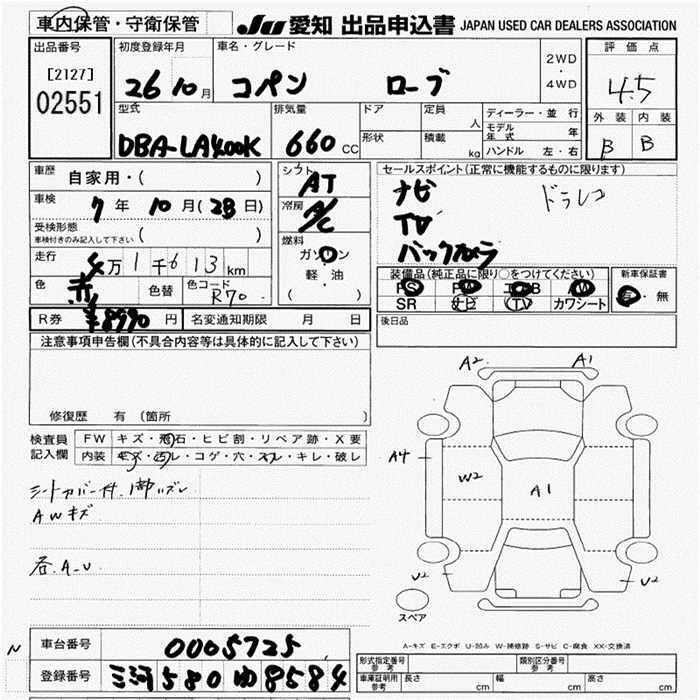 車内保管・守衛保管
JU 愛知 出品申込書 JAPAN USED CAR DEALERS ASSOCIATION
出品番号
[2127]
02551
初度登録年月
26 10月
車名・グレード
コペン ローブ
2WD
・
4WD
評価点
4.5
外装 内装
B B
型式
DBA-LA400K
排気量
660 CC
ドア
形状
定員
人
積載
kg
ディーラー・並行
モデル年式 年
ハンドル 左・右
車歴 自家用・( )
車検 7年 10月(28日)
受検形態
車検付きのみ記入して下さい ( )
走行 4万1千613km
色 赤 色替 色コード R70
R券 ¥8990円 名変通知期限 月 日
シフト
AT
冷房
A/C
燃料
ガソリン
軽・油
( )
セールスポイント(正常に機能するものに限ります)
ナビ ドラレコ
TV
バックカメラ
装備品(純正品に限り○をつけてください)
PS PW エアB AW
SR ナビ TV カワシート
新車保証書
有・無
後日品
注意事項申告欄(不具合内容等は具体的に記入して下さい)
修復歴 有 (箇所 )
検査員記入欄
FW キズ・飛石・ヒビ割・リペア跡・X要
内装 キズ・汚レ・コゲ・穴・スレ・キレ・破レ
シートカバー付
AWキズ
各A-U
A2 A1
A4
W2
A1
U2 U2
スペア
A-キズ E-エクボ U-凹み W-補修跡 S-サビ C-腐食 XX-交換済
N
車台番号 0005725
登録番号 三河 580 ゆ 8584
形式指定番号 参考 類別区分番号 参考
車庫証明用 参考 長さ cm 幅 cm 高さ cm